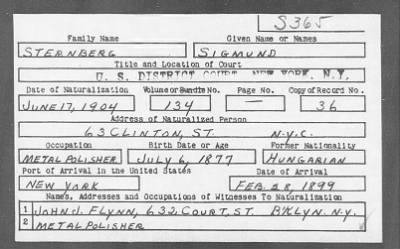 S365
Family Name Given Name or Names
STERNBERG SIGMUND
Title and Location of Court
U. S. DISTRICT COURT, NEW YORK, N.Y.
Date of Naturalization Volume or Bundle No. Page No. Copy of Record No.
JUNE 17, 1904 134 — 36
Address of Naturalized Person
63 CLINTON, ST. N.Y.C.
Occupation Birth Date or Age Former Nationality
METAL POLISHER JULY 6, 1877 HUNGARIAN
Port of Arrival in the United States Date of Arrival
NEW YORK FEB. 28, 1899
Names, Addresses and Occupations of Witnesses To Naturalization
1 JOHN J. FLYNN, 632, COURT, ST. BKLYN. N.Y.
2 METAL POLISHER